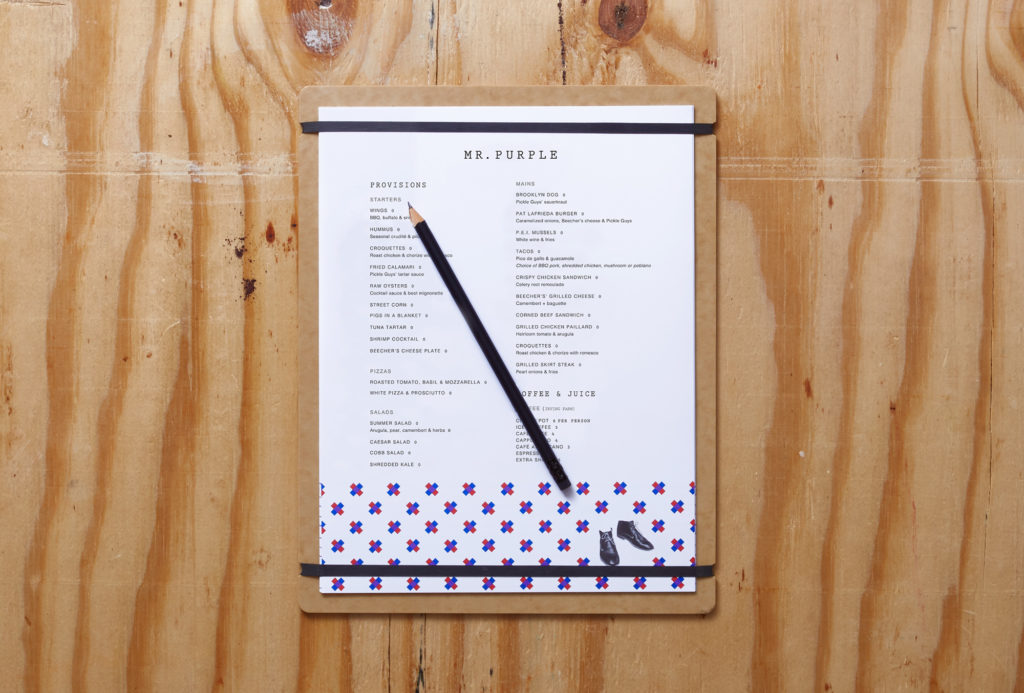 MR. PURPLE
PROVISIONS
STARTERS
WINGS 0
BBQ, buffalo &
HUMMUS 0
Seasonal crudité &
CROQUETTES 0
Roast chicken & chorizo
FRIED CALAMARI 0
Pickle Guys' tartar sauce
RAW OYSTERS 0
Cocktail sauce & beet mignonette
STREET CORN 0
PIGS IN A BLANKET 0
TUNA TARTAR 0
SHRIMP COCKTAIL 0
BEECHER'S CHEESE PLATE 0
PIZZAS
ROASTED TOMATO, BASIL & MOZZARELLA 0
WHITE PIZZA & PROSCIUTTO 0
SALADS
SUMMER SALAD 0
Arugula, pear, camembert & herbs 0
CAESAR SALAD 0
COBB SALAD 0
SHREDDED KALE 0
MAINS
BROOKLYN DOG 0
Pickle Guys' sauerkraut
PAT LAFRIEDA BURGER 0
Caramelized onions, Beecher's cheese & Pickle Guys
P.E.I. MUSSELS 0
White wine & fries
TACOS 0
Pico de gallo & guacamole
Choice of BBQ pork, shredded chicken, mushroom or poblano
CRISPY CHICKEN SANDWICH 0
Celery root remoulade
BEECHER'S' GRILLED CHEESE 0
Camembert + baguette
CORNED BEEF SANDWICH 0
GRILLED CHICKEN PAILLARD 0
Heirloom tomato & arugula
CROQUETTES 0
Roast chicken & chorizo with romesco
GRILLED SKIRT STEAK 0
Pearl onions & fries
COFFEE & JUICE
(IRVING FARM)
POT 6 PER PERSON
EXTRA